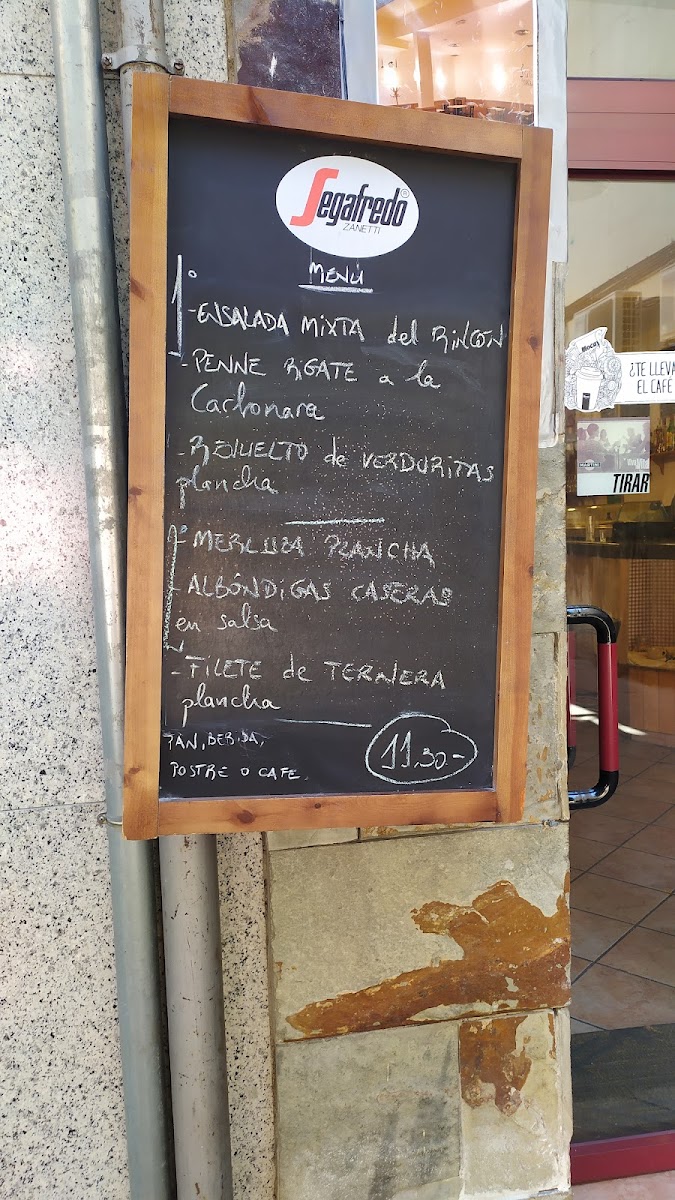 Segafredo®
ZANETTI
MENÚ
1º
-ENSALADA MIXTA del RINCÓN
-PENNE RIGATE a la
Carbonara
-REVUELTO de VERDURITAS
plancha
2º
-MERLUZA PLANCHA
-ALBÓNDIGAS CASERAS
en salsa
-FILETE de TERNERA
plancha
PAN, BEBIDA,
POSTRE O CAFE.
11,30-
¿TE LLEVA
EL CAFE
MARTINI
TIRAR